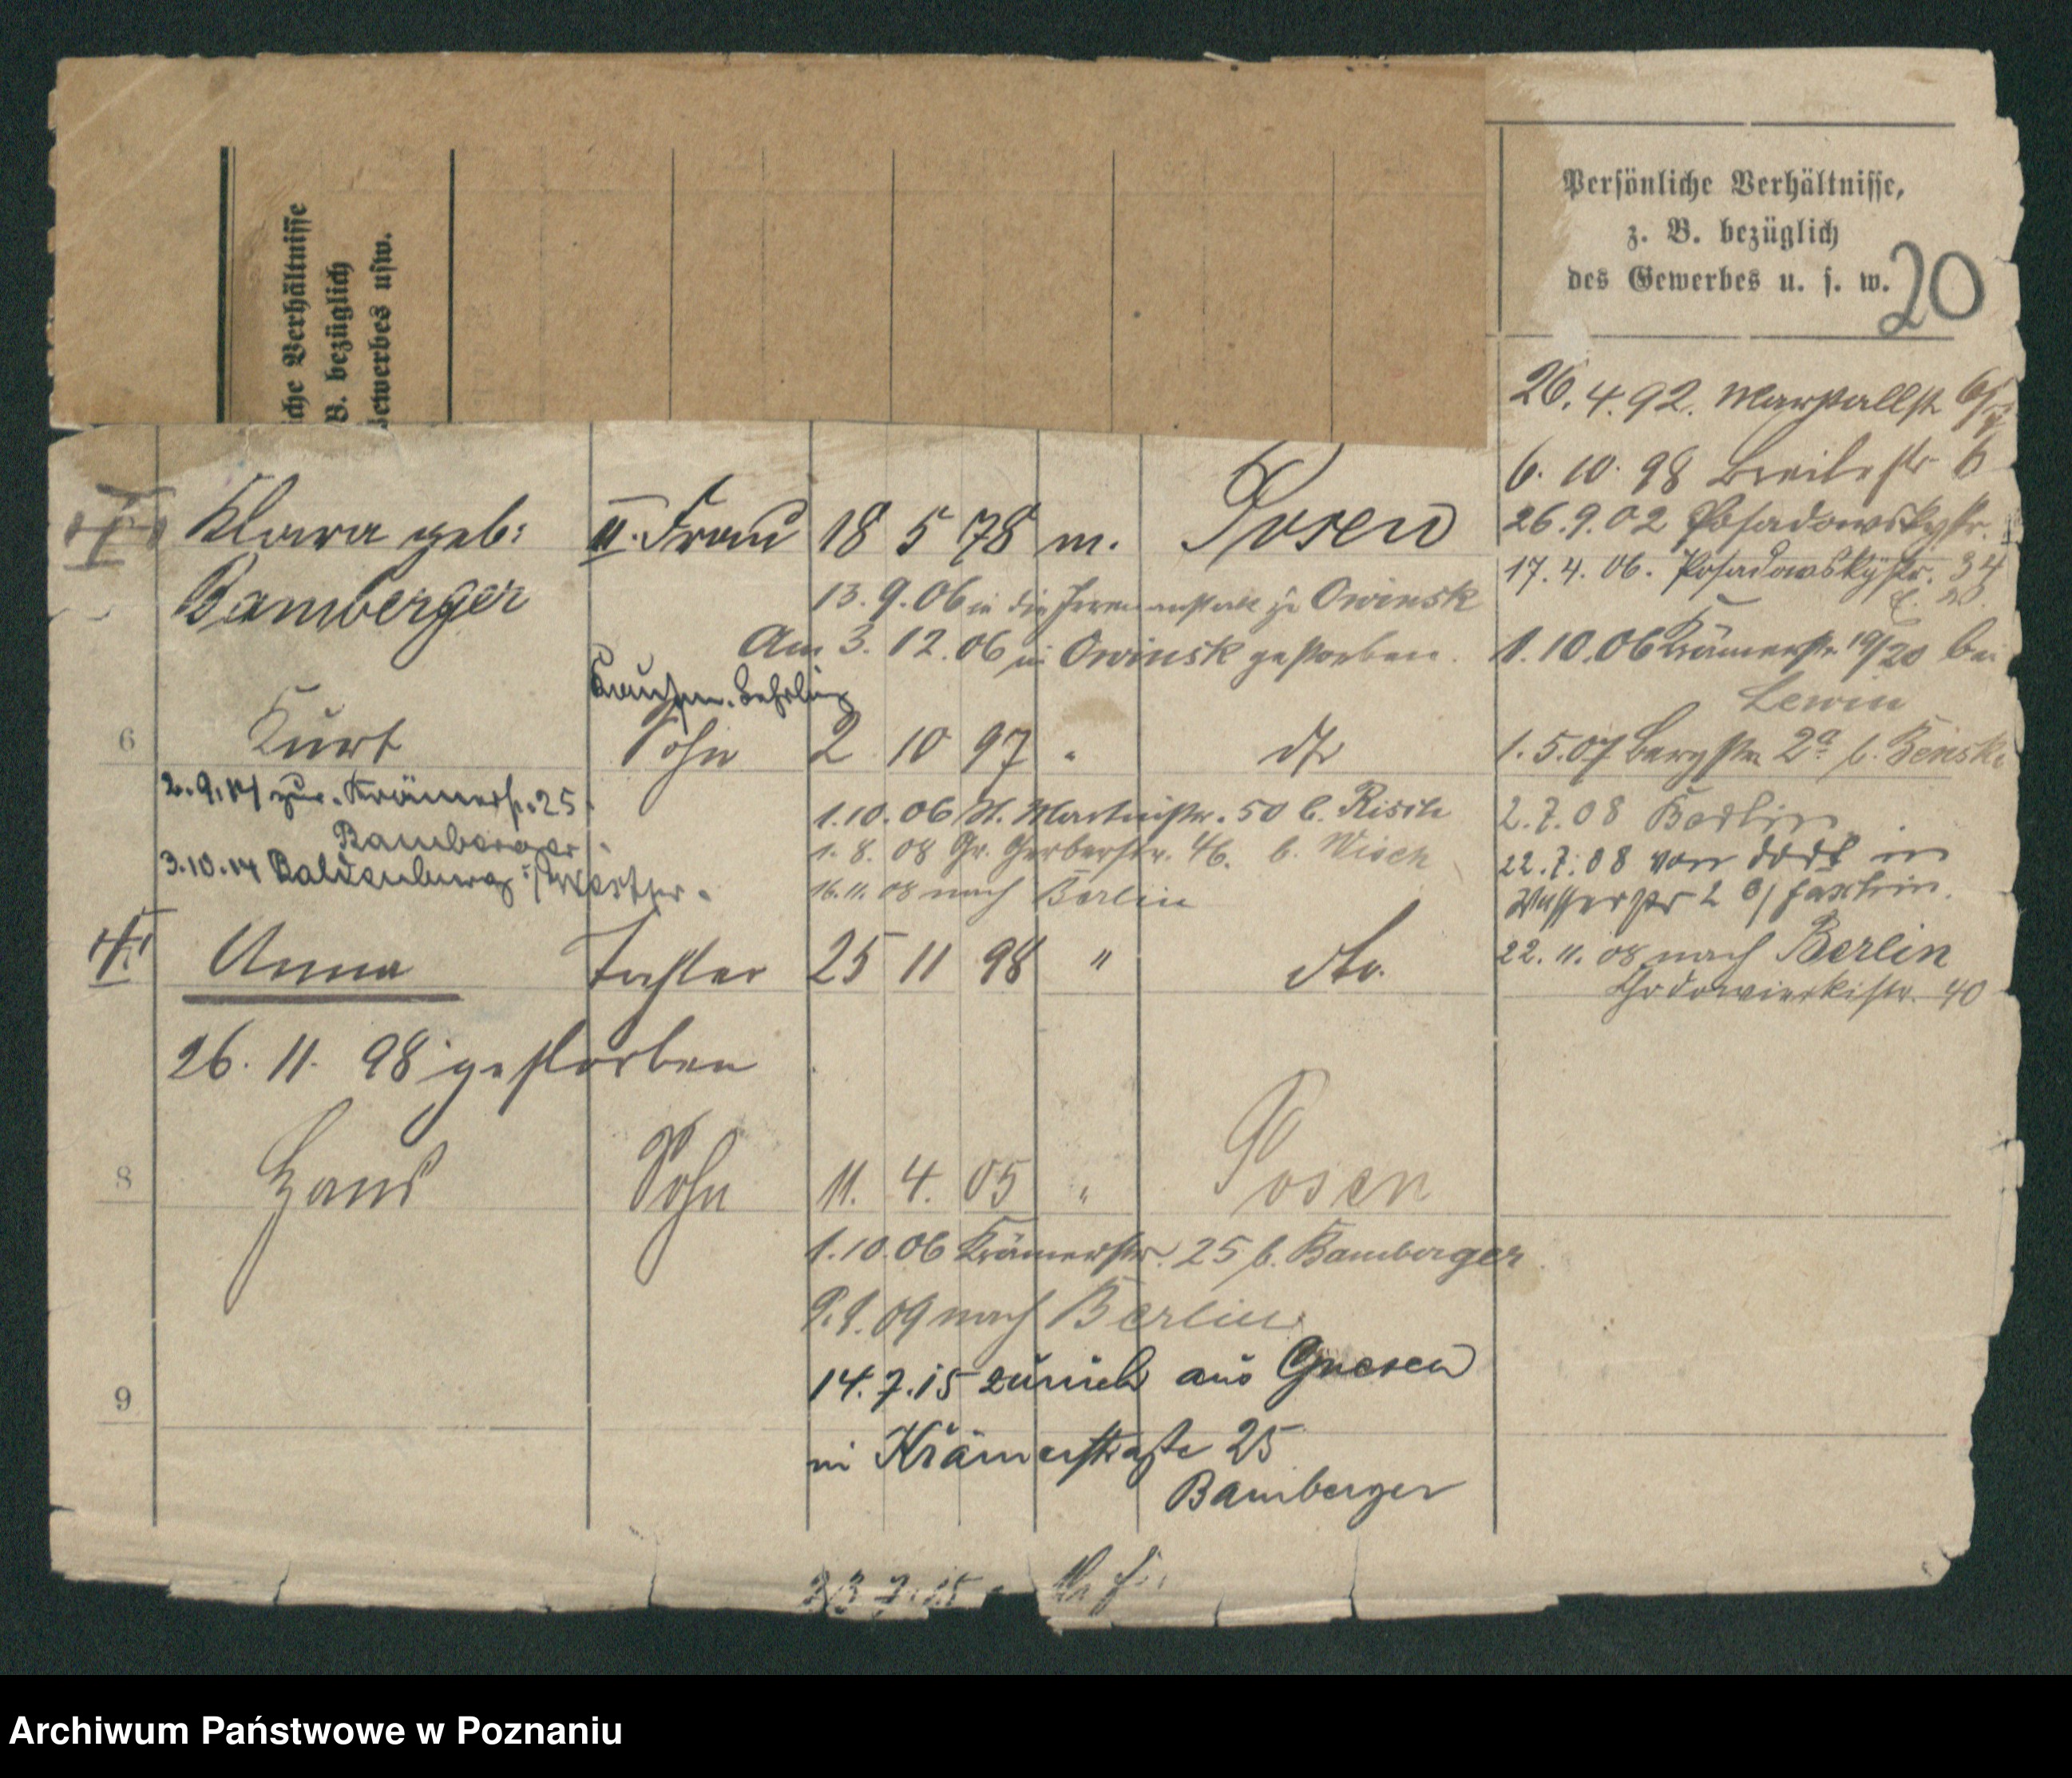 che Verhältnisse
B. bezüglich
Gewerbes usw.
Persönliche Verhältnisse,
z. B. bezüglich
des Gewerbes u. s. w.
20
26. 4. 92. Marstallstr
6. 10. 98 Breitestr. 6
26. 9. 02 Posadowskystr.
17. 4. 06. Posadowskystr. 34
1. 10. 06 Krämerstr 19/20 bei
Lewin
1. 5. 07 Bergstr. 2a b. Benski
2. 7. 08 Berlin
22. 7. 08 von dort in
Wasserstr 2
22. 11. 08 nach Berlin
Chodowieckistr. 40
Klara geb: II. Frau 18 5 78 m. Posen
Bamberger
13. 9. 06 in die Irrenanstalt zu Owinsk
Am 3. 12. 06 in Owinsk gestorben.
Kaufm. Lehrling
6 Kurt Sohn 2 10 97 " dto
2. 9. 14 zur. Krämerstr. 25
Bamberger
3. 10. 14 Baldenburg i/Westpr.
1. 10. 06 St. Martinstr. 50 b. Risch
1. 8. 08 Gr. Gerberstr. 46. b. Wisch
16. 11. 08 nach Berlin
Anna Tochter 25 11 98 " dto.
26. 11. 98 gestorben
8 Hans Sohn 11. 4. 05 " Posen
1. 10. 06 Krämerstr. 25 b. Bamberger
9. 1. 09 nach Berlin
9
14. 7. 15 zurück aus Gnesen
in Krämerstraße 25
Bamberger
23 7. 15
Archiwum Państwowe w Poznaniu